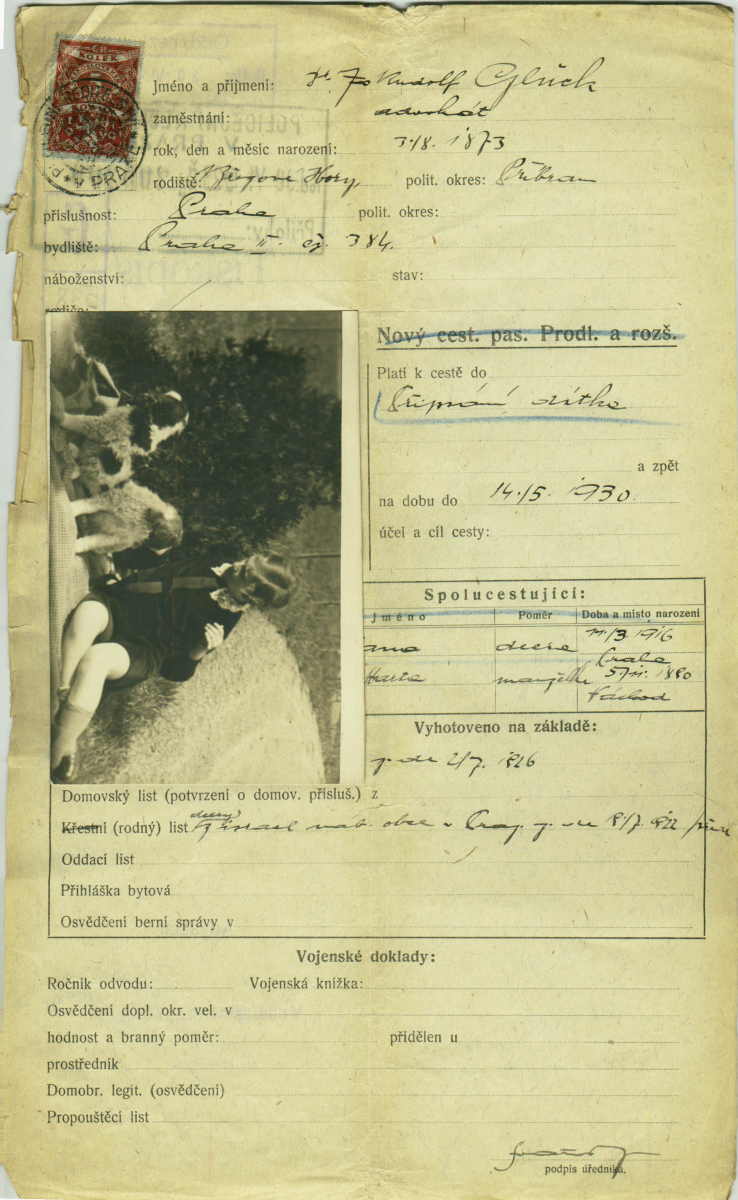 KOLEK
V PRAZE
Jméno a příjmení: Dr Rudolf Glück
zaměstnání: advokát
rok, den a měsíc narození: 3./8. 1873
rodiště: Březové Hory, polit. okres: Příbram
příslušnost: Praha polit. okres:
bydliště: Praha II. čp. 384.
náboženství: stav:
Nový cest. pas. Prodl. a rozš.
Platí k cestě do
Připsání dítka
a zpět
na dobu do 14./5. 1930.
účel a cíl cesty:
Spolucestující:
Jméno Poměr Doba a místo narození
dcera 1916
Praha
manželka 1880
Náchod
Vyhotoveno na základě:
2/7. 1926
Domovský list (potvrzení o domov. přísluš.) z
Křestní (rodný) list israel. náb. obce v
Oddací list
Přihláška bytová
Osvědčení berní správy v
Vojenské doklady:
Ročník odvodu: Vojenská knížka:
Osvědčení dopl. okr. vel. v
hodnost a branný poměr: přidělen u
prostředník
Domobr. legit. (osvědčení)
Propouštěcí list
podpis úředníka.